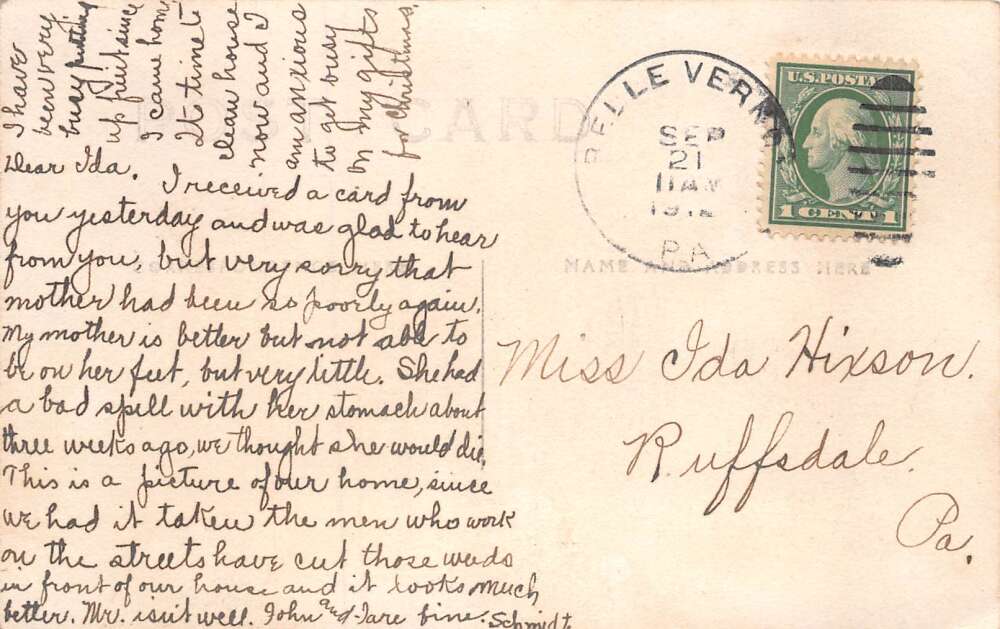 I have
been very
busy putting
up fruit since
I came home
It time to
clean house
now and I
am anxious
to get busy
on my gifts
for Christmas.
POST CARD
BELLE VERNON
SEP
21
11 AM
PA
U.S. POSTAGE
1 CENT 1
Dear Ida.
I received a card from
you yesterday and was glad to hear
from you, but very sorry that
mother had been so poorly again.
My mother is better but not able to
be on her feet, but very little. She had
a bad spell with her stomach about
three weeks ago, we thought she would die.
This is a picture of our home, since
we had it taken the men who work
on the streets have cut those weeds
in front of our house and it looks much
better. Mr. isn't well. John and I are fine. Schmidt
NAME AND ADDRESS HERE
Miss Ida Hixson.
Ruffsdale.
Pa.